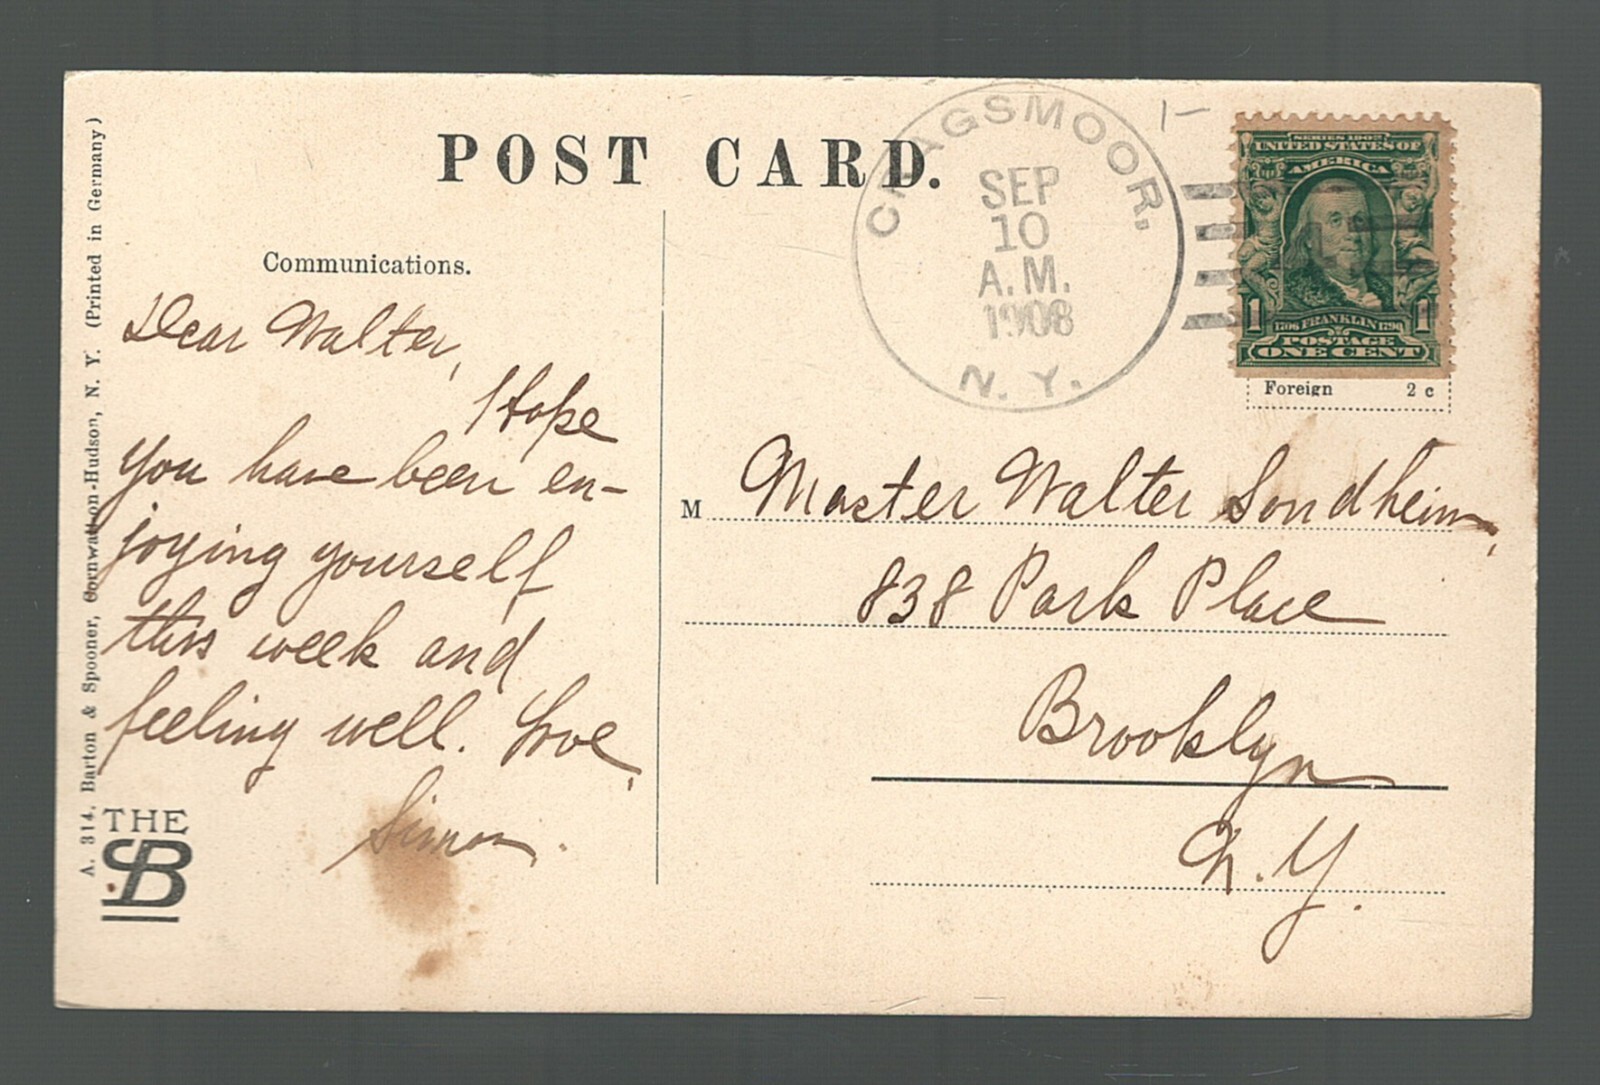 POST CARD.
CRAGSMOOR,
SEP
10
A.M.
1908
N. Y.
SERIES 1902
UNITED STATES OF
AMERICA
1 1
1706 FRANKLIN 1790
POSTAGE
ONE CENT
Foreign 2 c
Communications.
Dear Walter,
I Hope
you have been en-
joying yourself
this week and
feeling well. Love,
Simon.
M Master Walter Sondheim,
838 Park Place
Brooklyn
N.Y.
A. 314. Barton & Spooner, Cornwall-on-Hudson, N. Y. (Printed in Germany)
THE
SB